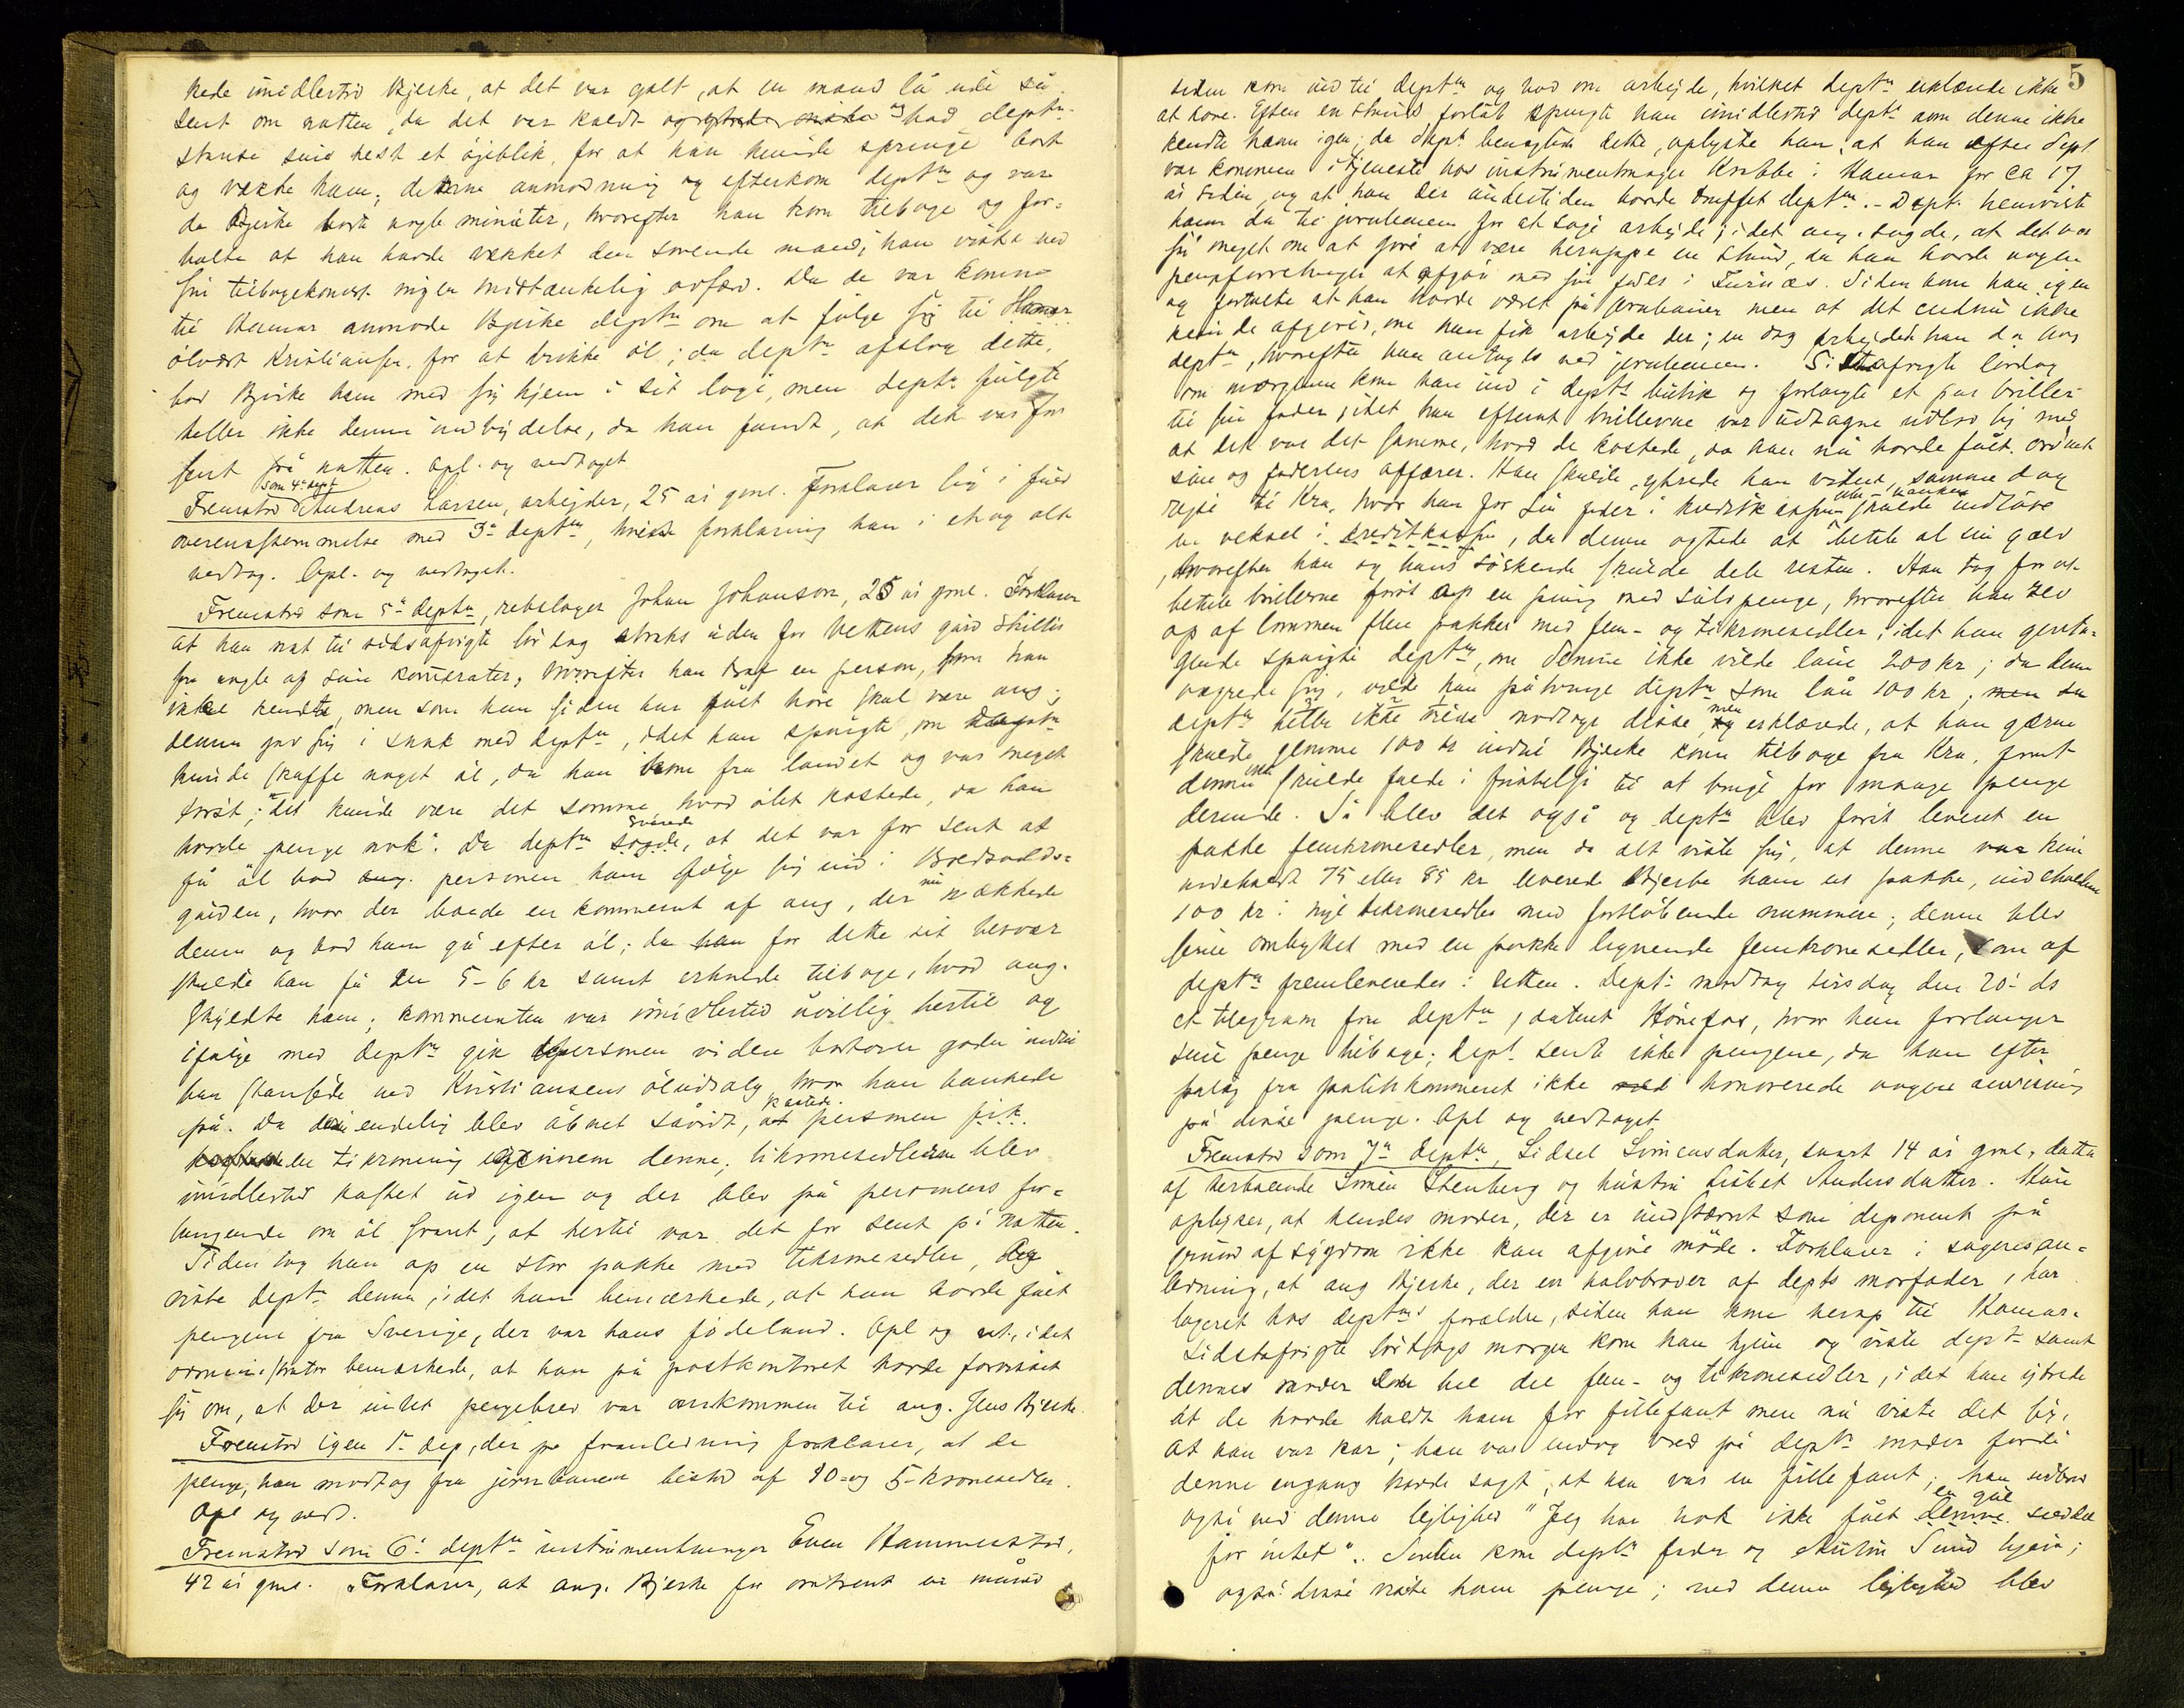 kede imidlertid Bjerke, at det var galt, at en mand lå ude så
sent om natten, da det var koldt og bad deptn
standse sin hest et öjeblik, for at han kunde springe bort
og vække ham; denne anmodning og efterkom deptn og var
da Bjerke borte nogle minuter, hvorefter han kom tilbage og for-
talte at han havde vækket den sovende mand; han viste ved
sin tilbagekomst ingen mistænkelig adfærd. Da de var komne
til Hamar anmode Bjerke deptn om at følge sig til Hamar
ölvært Kristiansen for at drikke öl; da deptn afslog dette,
bad Bjerke ham med sig hjem i sit logi, men deptn fulgte
heller ikke denne indbydelse, da han fandt, at det var for
sent på natten. Opl. og vedtaget
Fremstod som 4de dept Andreas Larsen, arbejder, 25 år gml. Forklarer sig i fuld
overensstemmelse med 3de deptn, hvis forklaring han i et og alt
vedtog. Opl. og vedtaget.
Fremstod som 5te deptn, rebslager Johan Johanson, 25 år gml. Forklarer
at han nat til sidstafvigte lördag straks uden for Vettens gård skiltes
fra nogle af sine kamerater, hvorefter han traf en person, som han
ikke kendte, men som han siden har fået höre skal være ang;
denne gav sig i snak med deptn, idet han spurgte, om deptn
kunde skaffe noget öl, da han kom fra landet og var meget
törst; "det kunde være det samme, hvad ölet kostede, da han
havde penge nok". Da deptn sagde svarede, at det var for sent at
få öl bad ang. personen ham fölge sig ind i Bredvolds-
gården, hvor der boede en kommerat af ang, der nu vækkede
denne og bad ham gå efter öl; da han for dette sit besvær
skulde han få en 5-6 kr samt erholde tilbage, hvad ang.
skyldte ham; kommeraten var imidlertid uvillig hertil og
ifölge med deptn gik personen videre bortover gaden indtil
han standsede ved Kristiansens öludsalg, hvor han bankede
på. Da dör endelig blev åbnet såvidt, at personen fik kastede
en tikroning ind gennem denne; tikronesedlen blev
imidlertid kastet ud igen og der blev på personens for-
langende om öl svaret, at hertil var det for sent på natten.
Siden tog han op en stor pakke med tikronesedler, og
viste deptn denne, idet han bemærkede, at han havde fået
pengene fra Sverige, der var hans födeland. Opl og vet., idet
administrator bemærkede, at han på postkontoret havde forvisset
sig om, at der intet pengebrev var ankommen til ang. Jens Bjerke.
Fremstod igen 1ste dep, der på foranledning forklarer, at de
penge, han modtog fra jernbanen bestod af 10- og 5-kronesedler.
Opl og ved.
Fremstod som 6te deptn instrumentmager Even Hammerstad,
42 år gml. Forklarer, at ang. Bjerke for omtrent en måned
5
siden kom ind til deptn og bad om arbejde, hvilket deptn erklærede ikke
at have. Efter en stunds forlöb spurgte han imidlertid deptn om denne ikke
kendte ham igen; da dept. benegtede dette, oplyste han, at han efter dept.
var kommen i tjeneste hos instrumentmager Krabbe i Hamar for ca 17
år siden og at han der undertiden havde truffet deptn. - Dept. henviste
ham da til jernbanen for at söge arbejde, idet ang. sagde, at det var
så meget om at göre at være heroppe en stund, da han havde nogen
pengforretninger at afgöre med sin fader i Furnæs. Siden kom han igen
og fortalte at han havde været på jernbanen men at det endnu ikke
kunde afgöres, om han fik arbejde der; en dag arbejdede han da hos
deptn, hvorefter han antoges ved jernbanen. Sidstafvigte lördag
om morgenen kom han ind i deptn butik og forlangte et par briller
til sin fader, idet han efterat brillerne var udtagne udlod sig med
at det var det samme, hvad de kostede, da han nu havde fået ordnet
sine og faderens affærer. Han skulde, ytrede han videre, samme dag
rejse til Kra, hvor han for sin fader i kreditkassen eller - banken skulde indlöse
en veksel i kreditkassen, da denne agtede at betale al sin gæld
hvorefter han og hans söskende skulde dele resten. Han tog for at
betale brillerne först op en pung med sölvpenge, hvorefter han tog
op af lommen flere pakker med fem- og tikronesedler, idet han genta-
gende spurgte deptn, om denne ikke vilde låne 200 kr; da denne
vægrede sig, vilde han påtvinge deptn som lån 100 kr; men da
deptn heller ikke vilde modtage disse, men og erklærede, at han gærne
skulde gemme 100 kr indtil Bjerke kom tilbage fra Kra, forat
denne ikke skulde falde i fristelse til at bruge for mange penge
derinde. Så blev det også og deptn blev först leveret en
pakke femkronesedler, men da det viste sig, at denne var kun
indeholdt 75 eller 85 kr leverede Bjerke ham en pakke, indeholdende
100 kr i nye tikronesedler med fortlöbende nummere; denne blev
siden ombyttet med en pakke lignende femkronesedler, som af
deptn fremleveredes i retten. Deptn modtog tirsdag den 20de ds
et telegram fra deptn, dateret Hönefos, hvor han forlanger
sine penge tilbage; Dept. sendte ikke pengene, da han efter
pålæg fra politikammeret ikke honorerede nogen anvisning
på disse penge. Opl og vedtaget
Fremstod som 7de deptn, Lidsel Simensdatter, snart 14 år gml, datter
af Simen Stenberg og hustru Lisbet Andersdatter. Hun
oplyser, at hendes moder, der er indstævnt som deponent på
grund af sygdom ikke kan afgive möde. Forklarer i sagens an-
ledning, at ang Bjerke, der er halvbroder af depts morfader, har
logeret hos deptns foreldre, siden han kom herop til Hamar.
Sidstafvigte lördags morgen kom han hjem og viste deptn samt
dennes moder en hel del fem- og tikronesedler, idet han ytrede
at de havde holdt ham for fillefant men nu viste det sig,
at han var kar; han var endog vred på deptn moder fordi
denne engang havde sagt, at han var en fillefant; han udbrød
også ved denne lejlighed "Jeg har nok ikke fået denne en gul seddel
for intet". Senere kom deptn fader og Sund hjem;
også disse viste ham penge; ved denne lejlighed blev